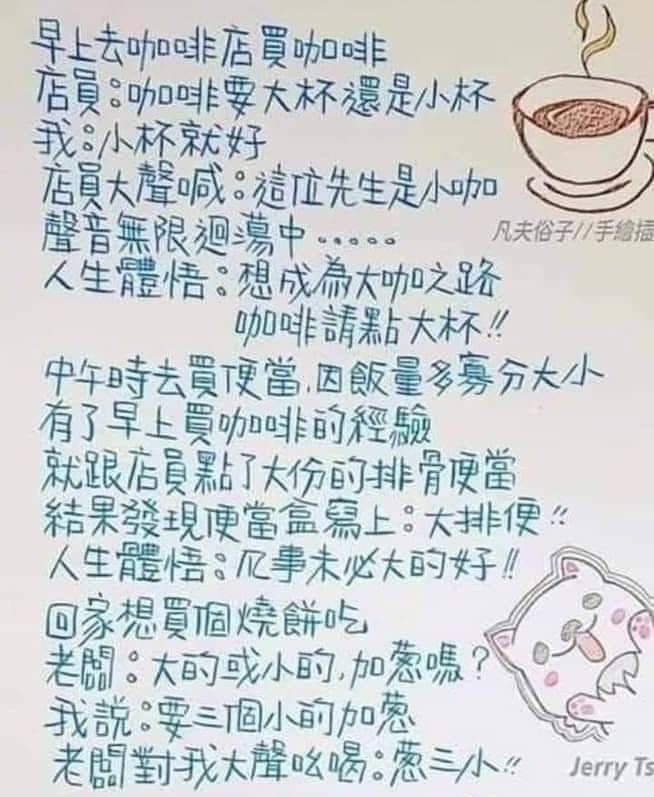 早上去咖啡店買咖啡
店員:咖啡要大杯還是小杯
我:小杯就好
店員大聲喊:這位先生是小咖
聲音無限迴蕩中.....
人生體悟:想成為大咖之路
咖啡請點大杯!!
凡夫俗子//手繪插
中午時去買便當,因飯量多寡分大小
有了早上買咖啡的經驗
就跟店員點了大份的排骨便當
結果發現便當盒寫上:大排便!!
人生體悟:凡事未必大的好!!
回家想買個燒餅吃
老闆:大的或小的,加蔥嗎?
我說:要三個小的加蔥
老闆對我大聲吆喝:蔥三小!!
Jerry Ts